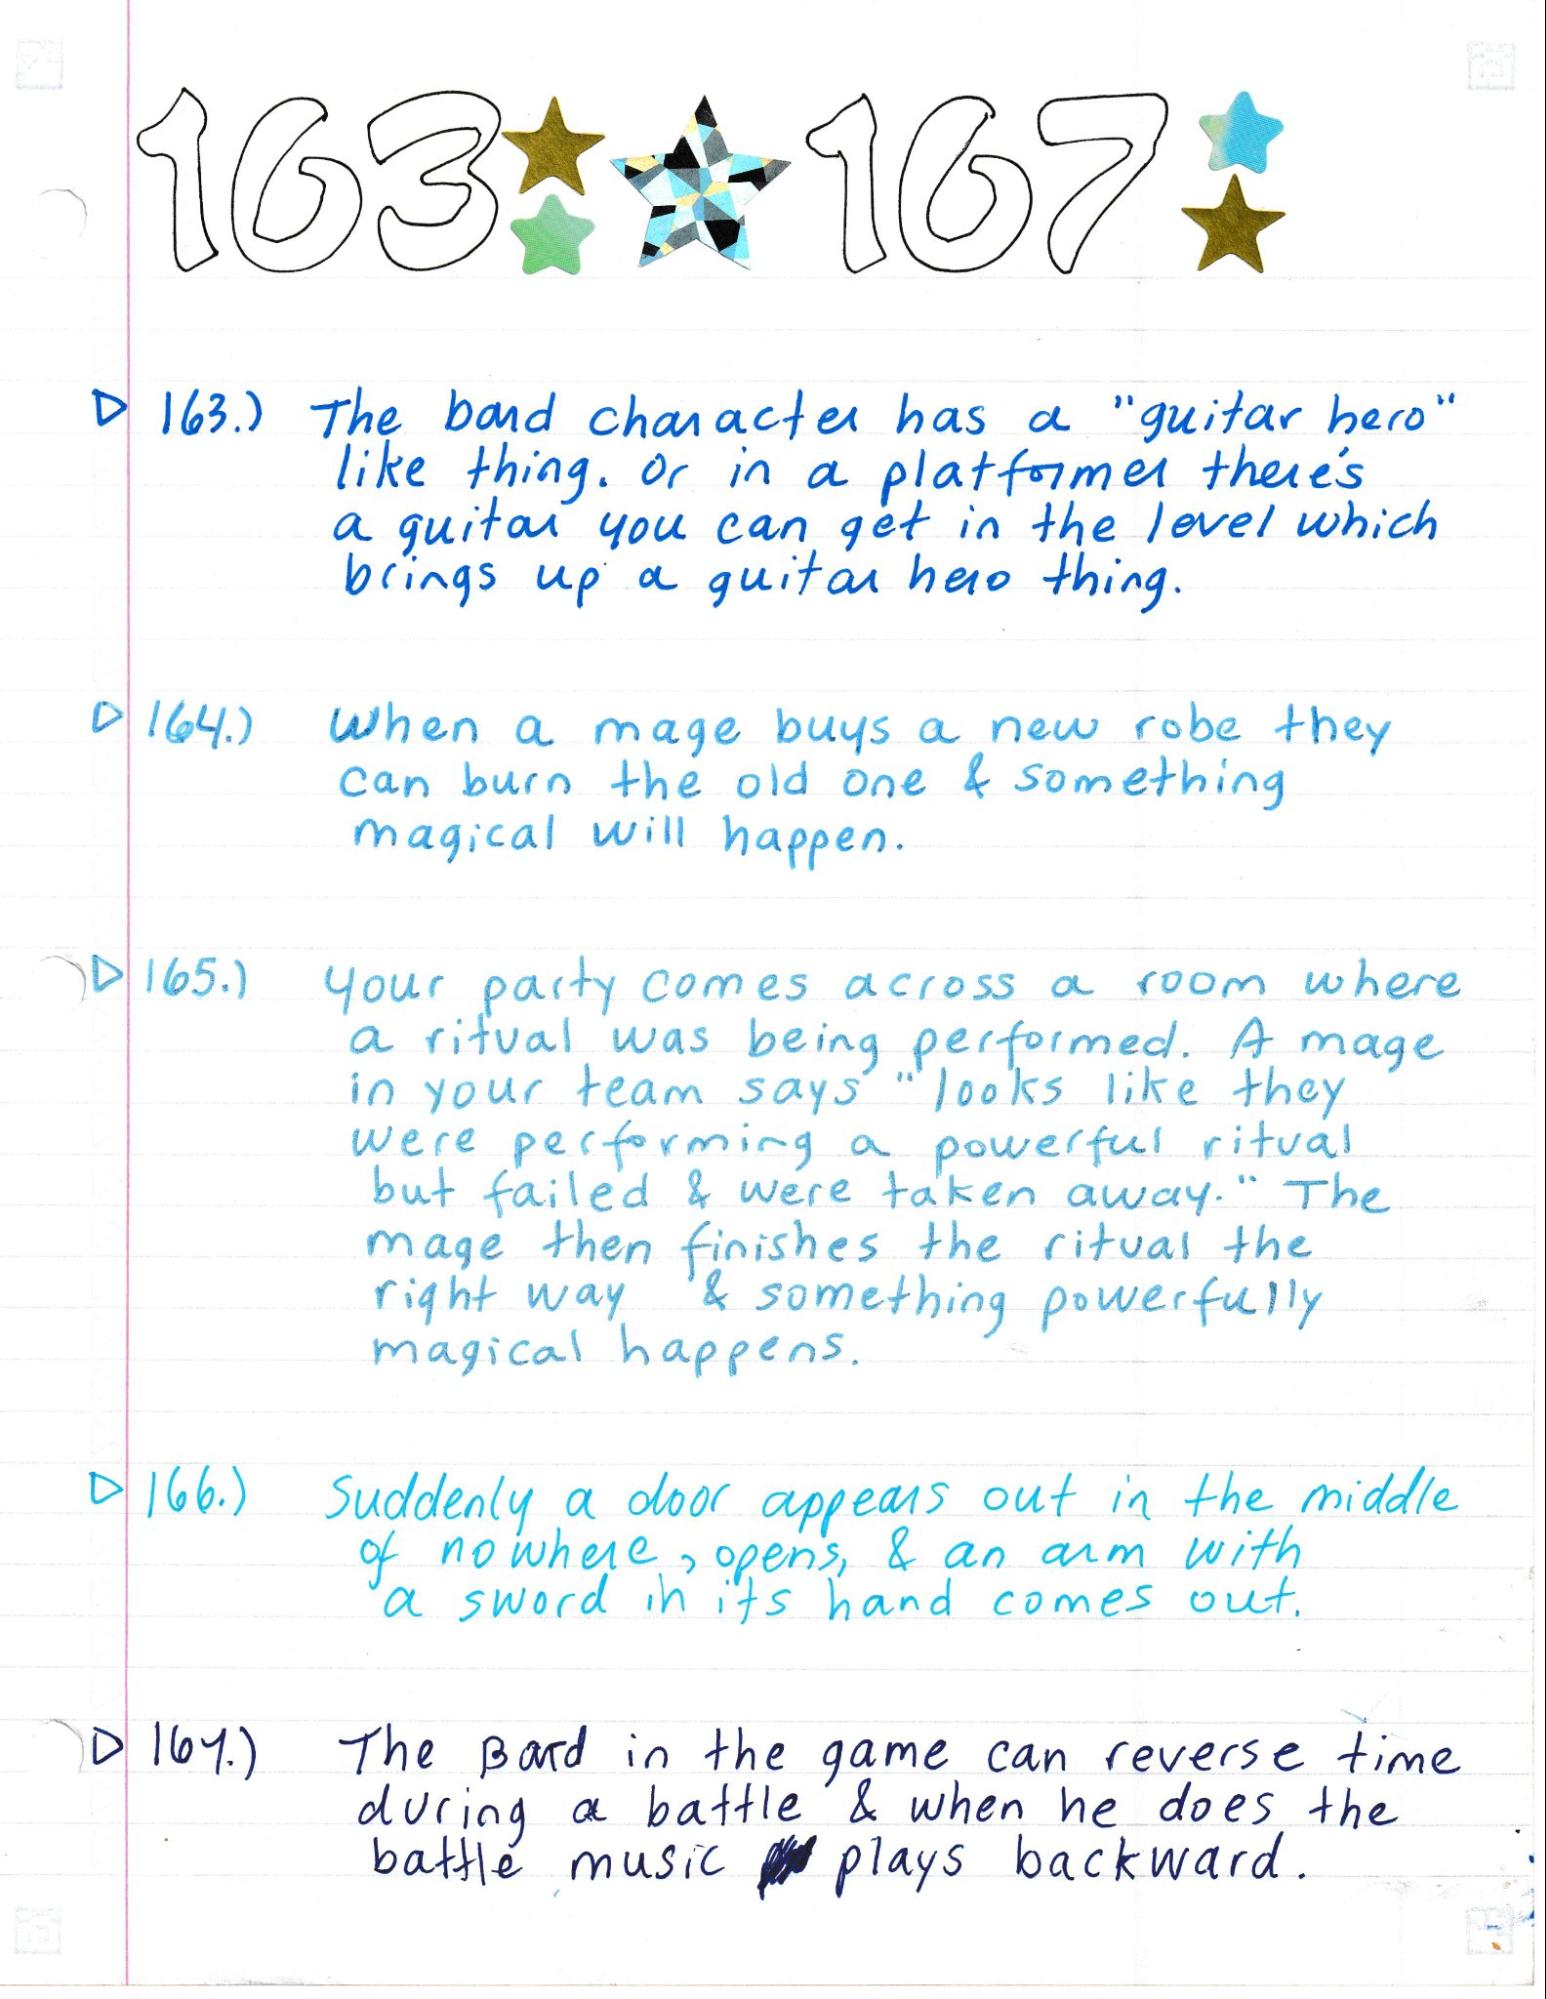 163 167
163.) The bard character has a "guitar hero"
like thing. Or in a platformer there's
a guitar you can get in the level which
brings up a guitar hero thing.
164.) When a mage buys a new robe they
can burn the old one & something
magical will happen.
165.) Your party comes across a room where
a ritual was being performed. A mage
in your team says "looks like they
were performing a powerful ritual
but failed & were taken away." The
mage then finishes the ritual the
right way & something powerfully
magical happens.
166.) Suddenly a door appears out in the middle
of nowhere, opens, & an arm with
a sword in its hand comes out.
167.) The Bard in the game can reverse time
during a battle & when he does the
battle music plays backward.